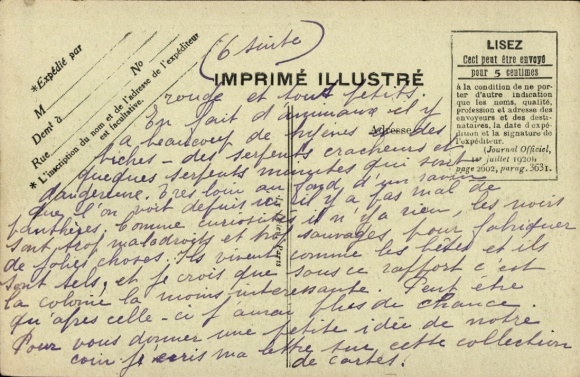 (6 suite)
*Expédié par
M
No
Demt à
Rue
*L'inscription du nom et de l'adresse de l'expéditeur
est facultative.
IMPRIMÉ ILLUSTRÉ
Adresse
LISEZ
Ceci peut être envoyé
pour 5 centimes
à la condition de ne por-
ter d'autre indication
que les noms, qualité,
profession et adresse des
envoyeurs et des desti-
nataires, la date d'expé-
dition et la signature de
l'expéditeur.
(Journal Officiel,
juillet 1920)
page 2602, parag. 3631.
rouge et tout petits.
En fait d'animaux il y
a beaucoup de hyènes - des
biches - des serpents cracheurs et
queques serpents minutes qui sont
dangereux. Très loin au fond d'un ravin
que l'on voit depuis ici il y a pas mal de
panthères. Comme curiosités il n'y a rien, les noirs
sont trop maladroits et trop sauvages pour fabriquer
de jolies choses. Ils vivent comme les bêtes et ils
sont tels, et je crois que sous ce rapport c'est
la colonie la moins intéressante. Peut être
qu'après celle-ci j'aurai plus de chance.
Pour vous donner une petite idée de notre
coin je écris ma lettre sur cette collection
de cartes.